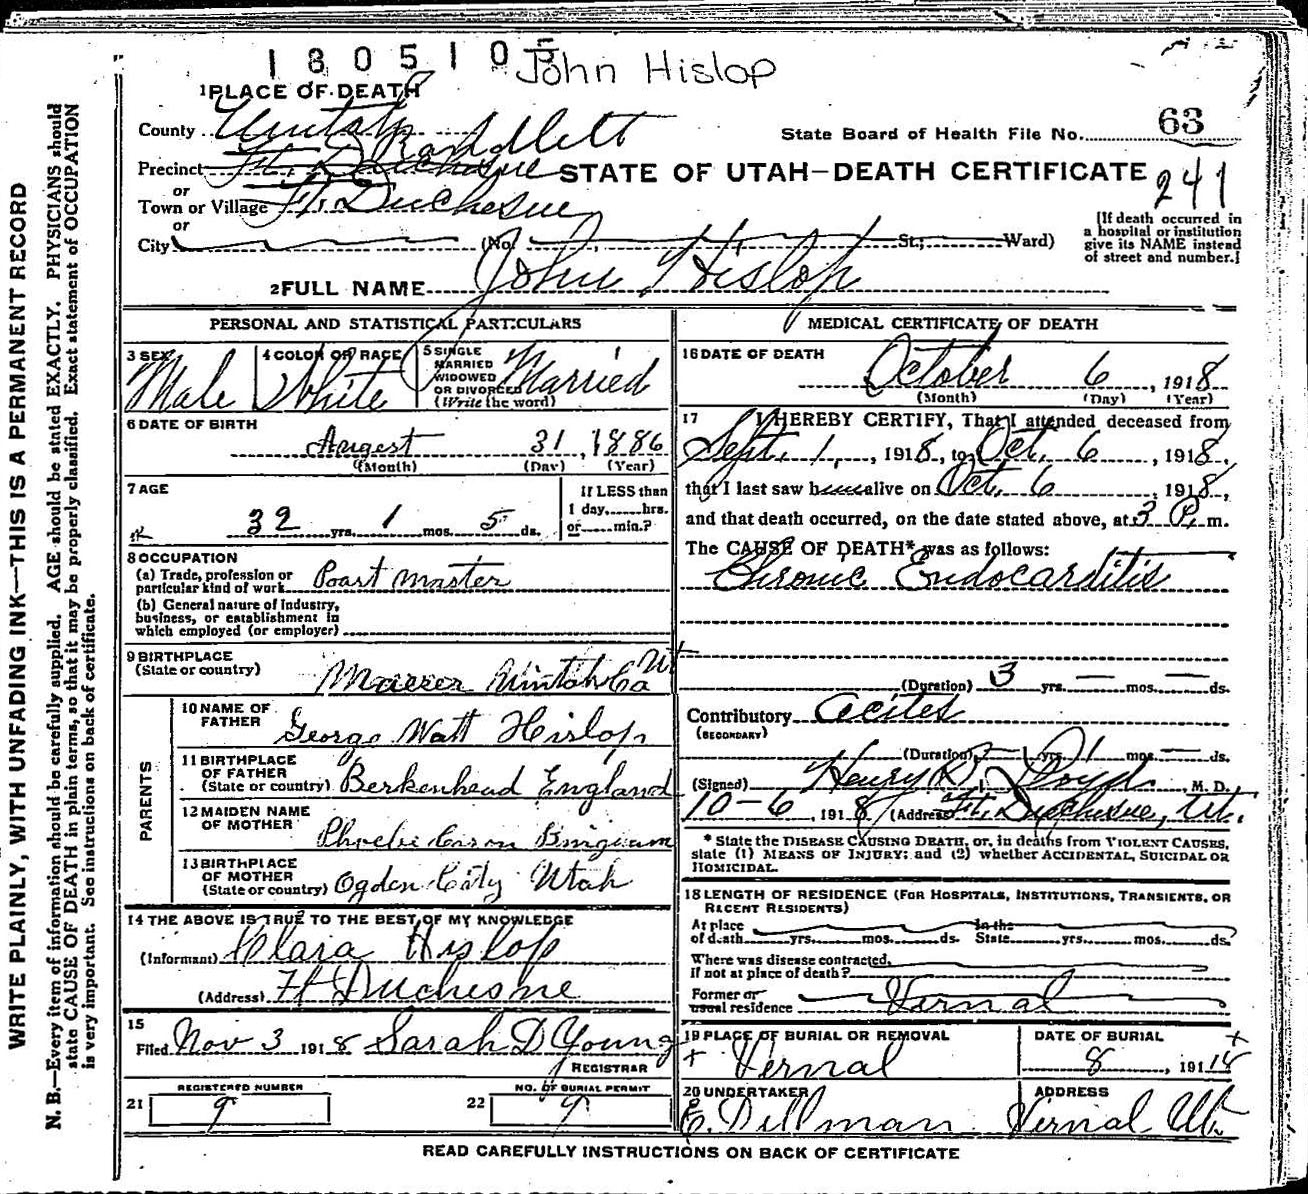 1805105 John Hislop
1 PLACE OF DEATH
County Uintah Randlett
State Board of Health File No. 63
Precinct Ft. Duchesne
STATE OF UTAH—DEATH CERTIFICATE
241
or
Town or Village Ft. Duchesne
or
City (No. St.; Ward)
[If death occurred in
a hospital or institution
give its NAME instead
of street and number.]
2 FULL NAME John Hislop
PERSONAL AND STATISTICAL PARTICULARS
3 SEX Male
4 COLOR OR RACE White
5 SINGLE
MARRIED
WIDOWED
OR DIVORCED
(Write the word) Married
6 DATE OF BIRTH
Augest 31, 1886
(Month) (Day) (Year)
7 AGE
32 yrs. 1 mos. 5 ds.
If LESS than
1 day,......hrs.
or......min.?
8 OCCUPATION
(a) Trade, profession or
particular kind of work Poast master
(b) General nature of industry,
business, or establishment in
which employed (or employer)
9 BIRTHPLACE
(State or country) Maeser Uintah Co Ut
PARENTS
10 NAME OF
FATHER George Watt Hislop
11 BIRTHPLACE
OF FATHER
(State or country) Berkenhead England
12 MAIDEN NAME
OF MOTHER Bingham
13 BIRTHPLACE
OF MOTHER
(State or country) Ogden City Utah
14 THE ABOVE IS TRUE TO THE BEST OF MY KNOWLEDGE
(Informant) Clara Hislop
(Address) Ft Duchesne
15
Filed Nov 3 1918 Sarah D Young
REGISTRAR
REGISTERED NUMBER
21 9
NO. OF BURIAL PERMIT
22 9
MEDICAL CERTIFICATE OF DEATH
16 DATE OF DEATH
October 6, 1918
(Month) (Day) (Year)
17 I HEREBY CERTIFY, That I attended deceased from
Sept. 1, 1918, to Oct. 6, 1918,
that I last saw h alive on Oct. 6, 1918,
and that death occurred, on the date stated above, at 3 P. m.
The CAUSE OF DEATH* was as follows:
Chronic Endocarditis
(Duration) 3 yrs. — mos. — ds.
Contributory Acites
(SECONDARY)
(Duration) — yrs. 1 mos. — ds.
(Signed) Henry B. Lloyd M. D.
10-6, 1918 (Address) Ft. Duchesne, Ut.
* State the DISEASE CAUSING DEATH, or, in deaths from VIOLENT CAUSES,
state (1) MEANS OF INJURY; and (2) whether ACCIDENTAL, SUICIDAL OR
HOMICIDAL.
18 LENGTH OF RESIDENCE (FOR HOSPITALS, INSTITUTIONS, TRANSIENTS, OR
RECENT RESIDENTS)
At place In the
of death yrs. mos. ds. State yrs. mos. ds.
Where was disease contracted,
if not at place of death?
Former or
usual residence Vernal
19 PLACE OF BURIAL OR REMOVAL
Vernal
DATE OF BURIAL
8, 191
20 UNDERTAKER
E. Dillman
ADDRESS
Vernal Ut.
READ CAREFULLY INSTRUCTIONS ON BACK OF CERTIFICATE
WRITE PLAINLY, WITH UNFADING INK—THIS IS A PERMANENT RECORD
N. B.—Every item of information should be carefully supplied. AGE should be stated EXACTLY. PHYSICIANS should
state CAUSE OF DEATH in plain terms, so that it may be properly classified. Exact statement of OCCUPATION
is very important. See instructions on back of certificate.